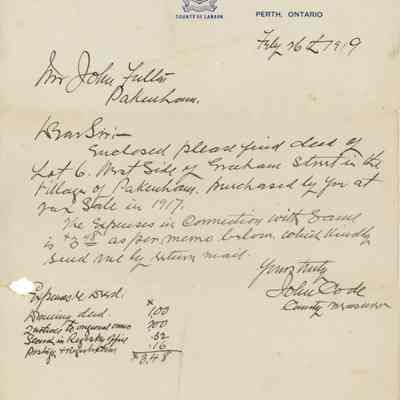 COUNTY OF LANARK
PERTH, ONTARIO
Feby 26th 1919
Mr John Fulton
Pakenham.
Dear Sir:-
Enclosed please find deed of
Lot 6. West Side of Graham Street in the
Village of Pakenham, purchased by you at
our Sale in 1917.
The Expenses in Connection with Same
is $3.48 as per memo below, which kindly
Send me by return mail.
Yours truly
John Code
County Treasurer
Expenses re Deed.
Drawing deed. 1.00
Notices to original owner 2.00
Search in Registry office .32
Postage & Registration .16
$3.48